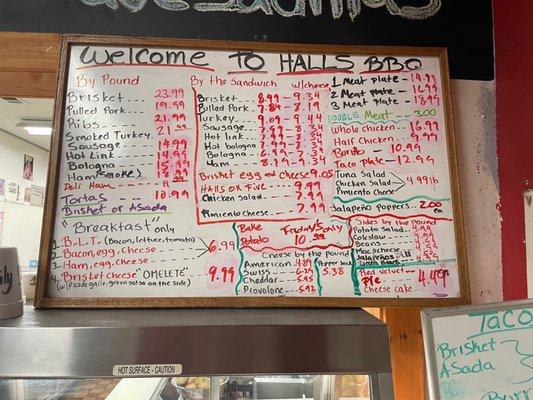 Welcome To HALLS BBQ
By Pound
Brisket 23.99
Pulled Pork 19.59
Ribs 21.99
Smoked Turkey 21
Sausage 14.99
Hot Link 14.99
Bologna 15.99
Ham (Smoke)
Deli Ham
Tortas 10.99
Brisket or Asada
By the Sandwich w/cheese
Brisket 8.99 - 9.34
Pulled Pork 7.84 - 8.19
Turkey 9.09 - 9.44
Sausage 7.99 - 8.34
Hot link 7.99 - 8.34
Hot bologna 7.99 - 8.34
Bologna 7.99 - 8.34
Ham 8.19 - 9.34
Brisket egg and Cheese 9.05
Halls on Five 9.99
Chicken Salad 9.99
Pimiento Cheese 7.99
1 Meat Plate 14.99
2 Meat Plate 16.99
3 Meat Plate 18.99
DOUBLE Meat 3.00
Whole Chicken 16.99
Half Chicken 9.99
Burrito 10.99
Taco Plate - 12.99
Tuna Salad
Chicken Salad 4.99 lb
Pimiento Cheese
Jalapeño Poppers 2.00 ea
"Breakfast" only
1- B.L.T (Bacon, lettuce, tomato)
2 Bacon, egg, Cheese 6.99
3 Ham, egg, Cheese
4 Brisket Cheese "OMELETE" 9.99
w/(Pico de gallo, green salsa on the side)
Bake Potato Friday's only 10.99
Cheese by the pound
American 4.89
Swiss
Cheddar 5.95
Provolone 5.92
Pepper Jack 5.38
Sides by the pound
Potato Salad
Coleslaw
Beans
Mac & cheese
Red Velvet
Pie 4.49
Cheese cake
HOT SURFACE - CAUTION
TACO
Brisket
Asada